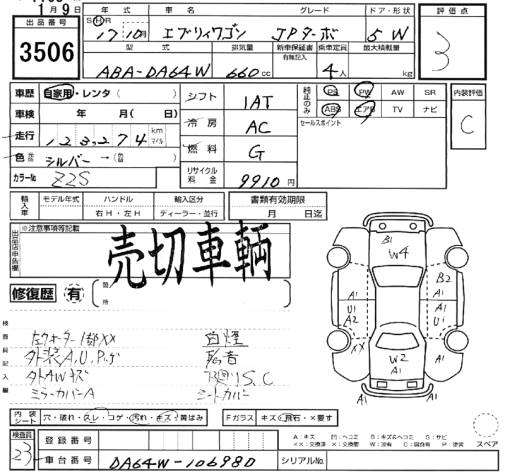 月 9 日
出品番号 3506
年式 車名 グレード ドア・形状
SH 17 年 10 月 エブリィワゴン JPターボ 5 W
型式 排気量 新車保証書 有無記入 乗車定員 最大積載量
ABA-DA64W 660 cc 4 人 kg
評価点
3
車歴 自家用・レンタ ( )
車検 年 月 ( 日)
走行 123,274 km マイル
色 シルバー →(色替)
カラーNo Z2S
シフト 1AT
冷房 AC
燃料 G
リサイクル料金 9910 円
純正のみ PS PW AW SR
ABS エアB TV ナビ
セールスポイント
内装評価
C
輸入車 モデル年式 ハンドル 輸入区分 書類有効期限
右H・左H ディーラー・並行 月 日迄
出品店申告欄 ※注意事項等記載
売切車輌
修復歴 有 箇所
検査員記入欄
白煙
外装A,U,P,サビ
外AWキズ
ミラーカバーA
シートカバー
B1
W4
A1
B2
A1
U1
A2
A1
U1
XX
W2
A1
A1
A1
スペア
内装シート 穴・破れ・スレ・コゲ・汚れ・キズ・黄ばみ
Fガラス キズ・飛石・×要す
A:キズ U:ヘコミ B:キズ&ヘコミ S:サビ
XX:交換済 X:要交換 W:波有 C:腐食有 P:塗装
検査員 23
登録番号
車台番号 DA64W-106980
シリアルNo.